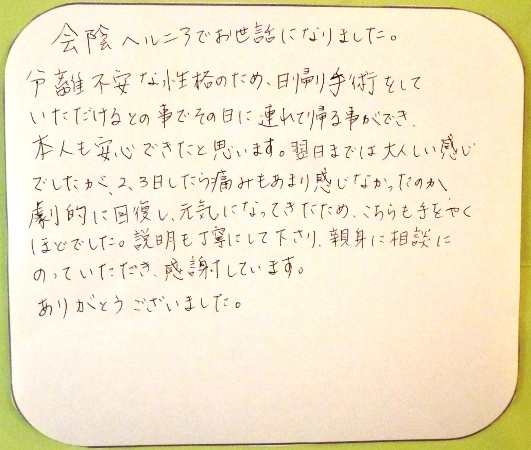 会陰ヘルニアでお世話になりました。
分離不安な性格のため、日帰り手術をして
いただけるとの事でその日に連れて帰る事ができ、
本人も安心できたと思います。翌日までは大人しい感じ
でしたが、2、3日したら痛みもあまり感じなかったのか、
劇的に回復し、元気になってきたため、こちらも手をやく
ほどでした。説明も丁寧にして下さり、親身に相談に
のっていただき、感謝しています。
ありがとうございました。